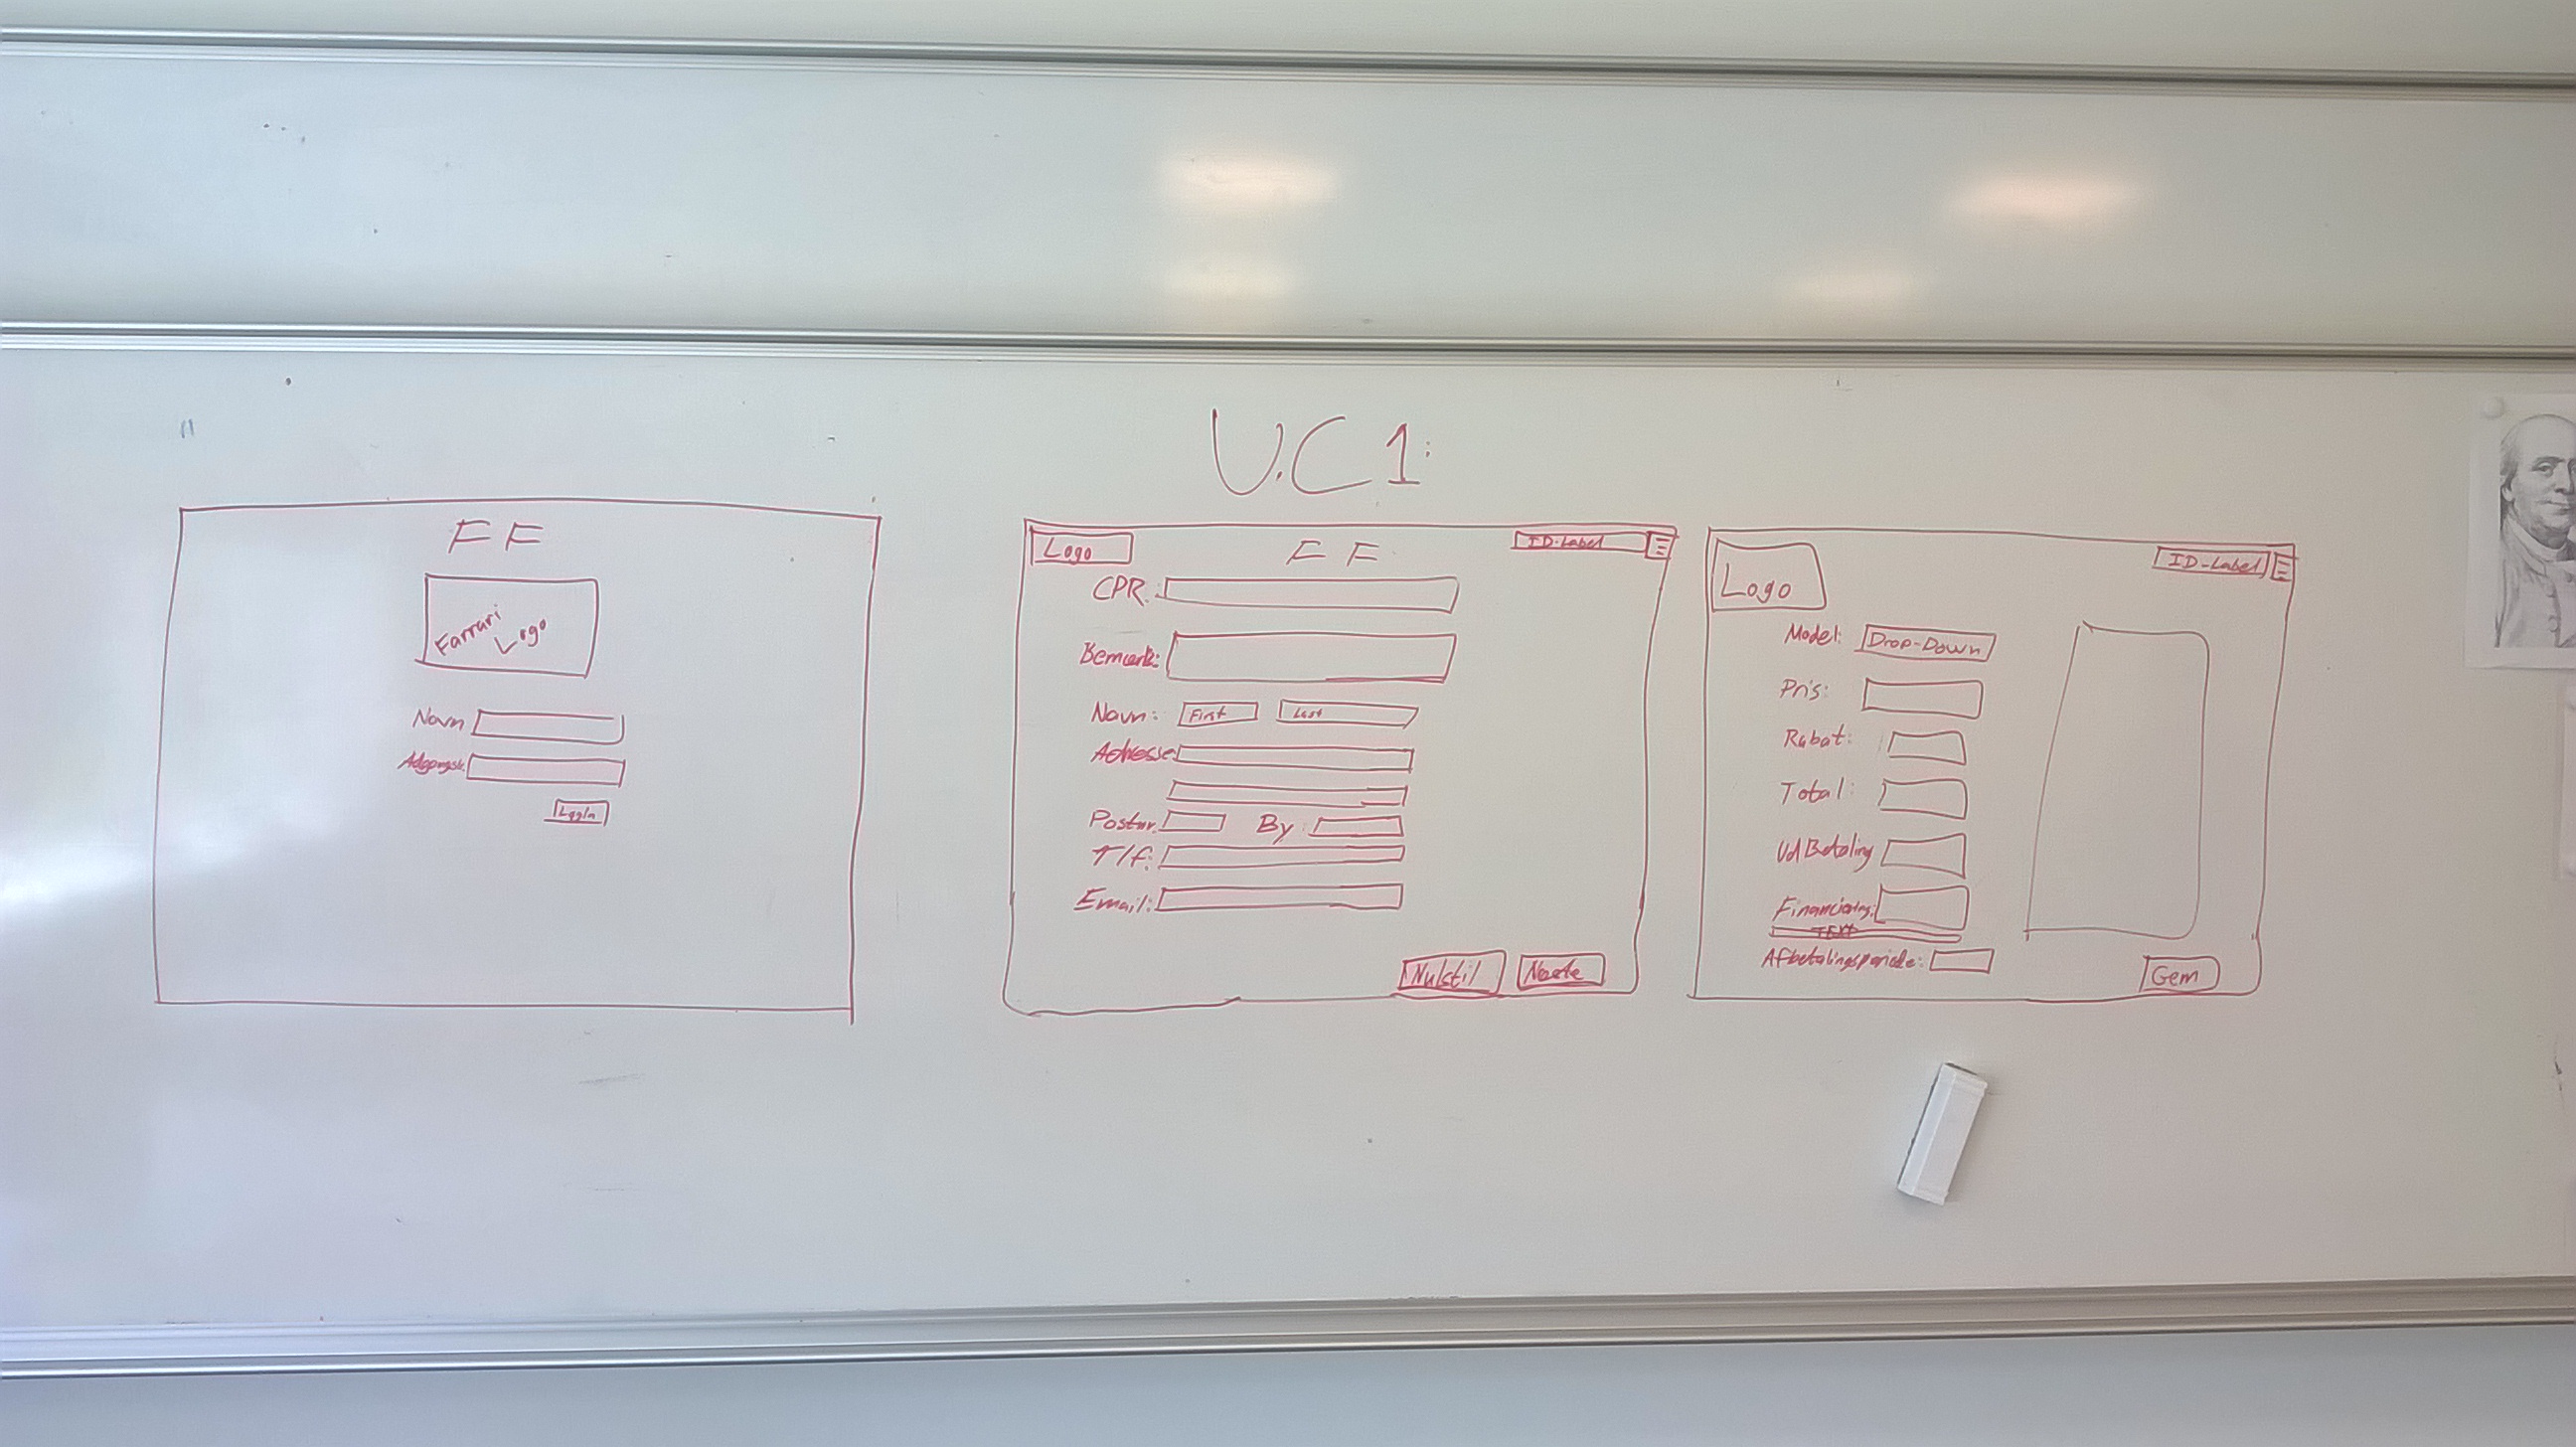 U.C 1:
F F
Farrari
Logo
Navn
Adgangsk.
LogIn
Logo
F F
ID-Label
CPR:
Bemærk:
Navn: First Last
Adresse
Postnr. By:
Tlf:
Email:
Nulstil Næste
Logo
ID-Label
Model: Drop-Down
Pris:
Rabat:
Total:
Udbetaling
TEXT
Afbetalingsperiode:
Gem